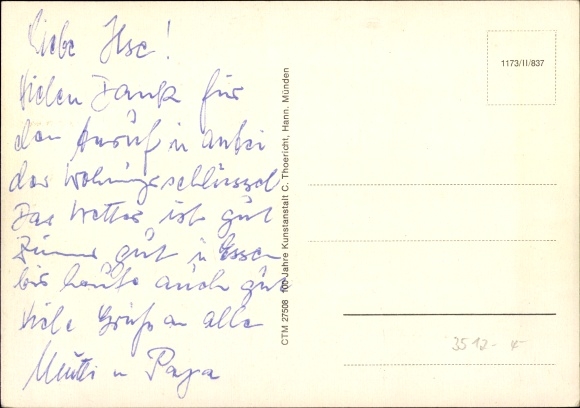 Liebe Ilse!
Vielen Dank für
den Anruf u anbei
der Wohnungsschlüssel
Das Wetter ist gut
Zimmer gut u Essen
bis heute auch gut
Viele Grüße an alle
Mutti u Papa
CTM 27508 100 Jahre Kunstanstalt C. Thoericht, Hann. Münden
1173/II/837
3512-